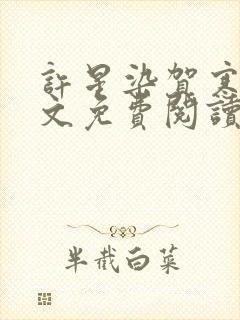 許星染賀寒
文免費閱讀
半截白菜